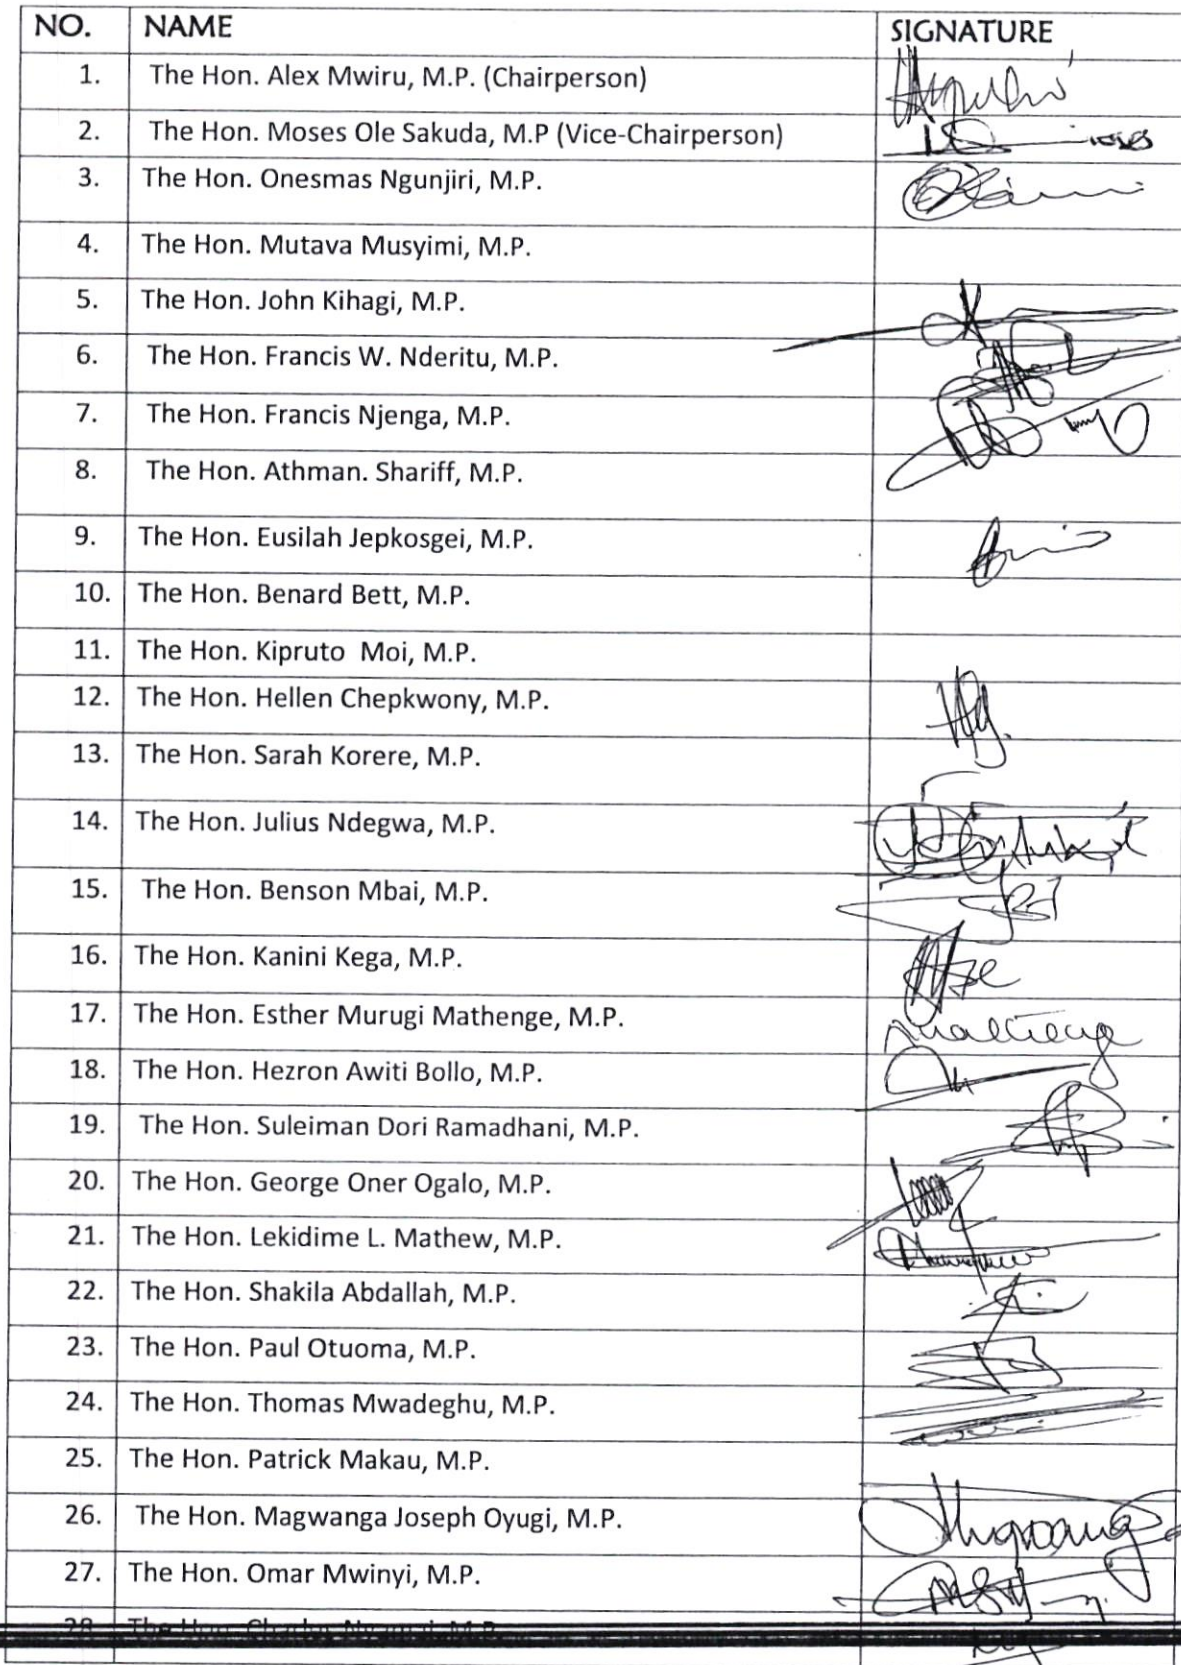 NO. NAME SIGNATURE
1. The Hon. Alex Mwiru, M.P. (Chairperson)
2. The Hon. Moses Ole Sakuda, M.P (Vice-Chairperson)
3. The Hon. Onesmas Ngunjiri, M.P.
4. The Hon. Mutava Musyimi, M.P.
5. The Hon. John Kihagi, M.P.
6. The Hon. Francis W. Nderitu, M.P.
7. The Hon. Francis Njenga, M.P.
8. The Hon. Athman. Shariff, M.P.
9. The Hon. Eusilah Jepkosgei, M.P.
10. The Hon. Benard Bett, M.P.
11. The Hon. Kipruto Moi, M.P.
12. The Hon. Hellen Chepkwony, M.P.
13. The Hon. Sarah Korere, M.P.
14. The Hon. Julius Ndegwa, M.P.
15. The Hon. Benson Mbai, M.P.
16. The Hon. Kanini Kega, M.P.
17. The Hon. Esther Murugi Mathenge, M.P.
18. The Hon. Hezron Awiti Bollo, M.P.
19. The Hon. Suleiman Dori Ramadhani, M.P.
20. The Hon. George Oner Ogalo, M.P.
21. The Hon. Lekidime L. Mathew, M.P.
22. The Hon. Shakila Abdallah, M.P.
23. The Hon. Paul Otuoma, M.P.
24. The Hon. Thomas Mwadeghu, M.P.
25. The Hon. Patrick Makau, M.P.
26. The Hon. Magwanga Joseph Oyugi, M.P.
27. The Hon. Omar Mwinyi, M.P.
28. The Hon.